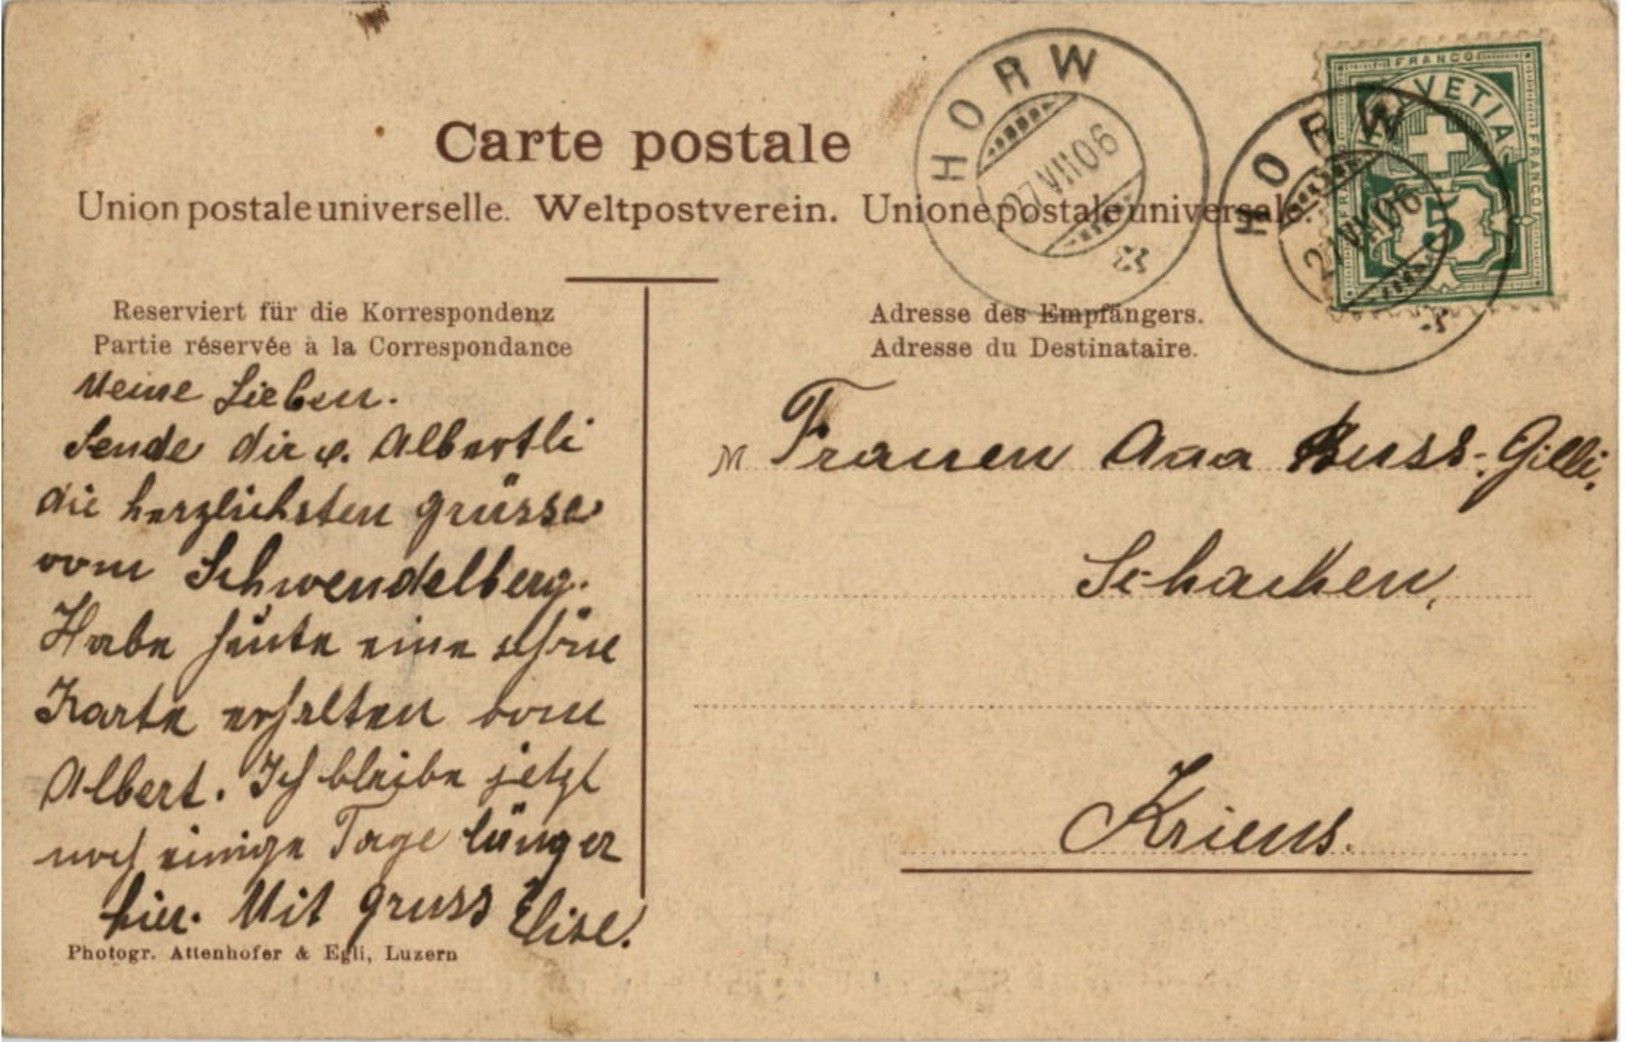 Carte postale
Union postale universelle. Weltpostverein. Unione postale universale.
HORW
27 VII 06
HORW
27 VII 06
FRANCO
HELVETIA
FRANCO
FRANCO
5
Reserviert für die Korrespondenz
Partie réservée à la Correspondance
Meine Lieben.
Sende dir u. Albertli
die herzlichsten Grüsse
vom Schwendelberg.
Habe heute eine schöne
Karte erhalten vom
Albert. Ich bleibe jetzt
noch einige Tage länger
hier. Mit Gruss Elise.
Photogr. Attenhofer & Egli, Luzern
Adresse des Empfängers.
Adresse du Destinataire.
M Frauen Buss-Gilli,
Schachen,
Kriens.